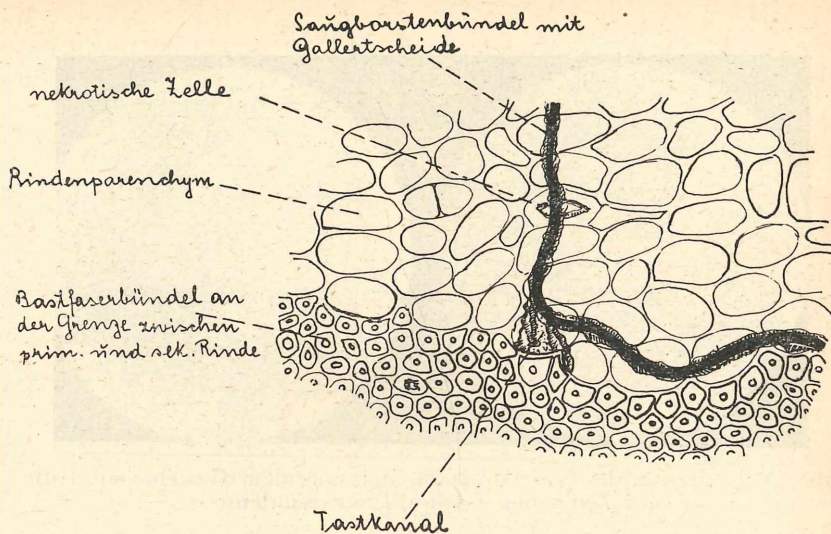 Saugborstenbündel mit
Gallertscheide
nekrotische Zelle
Rindenparenchym
Bastfaserbündel an
der Grenze zwischen
prim. und sek. Rinde
Tastkanal